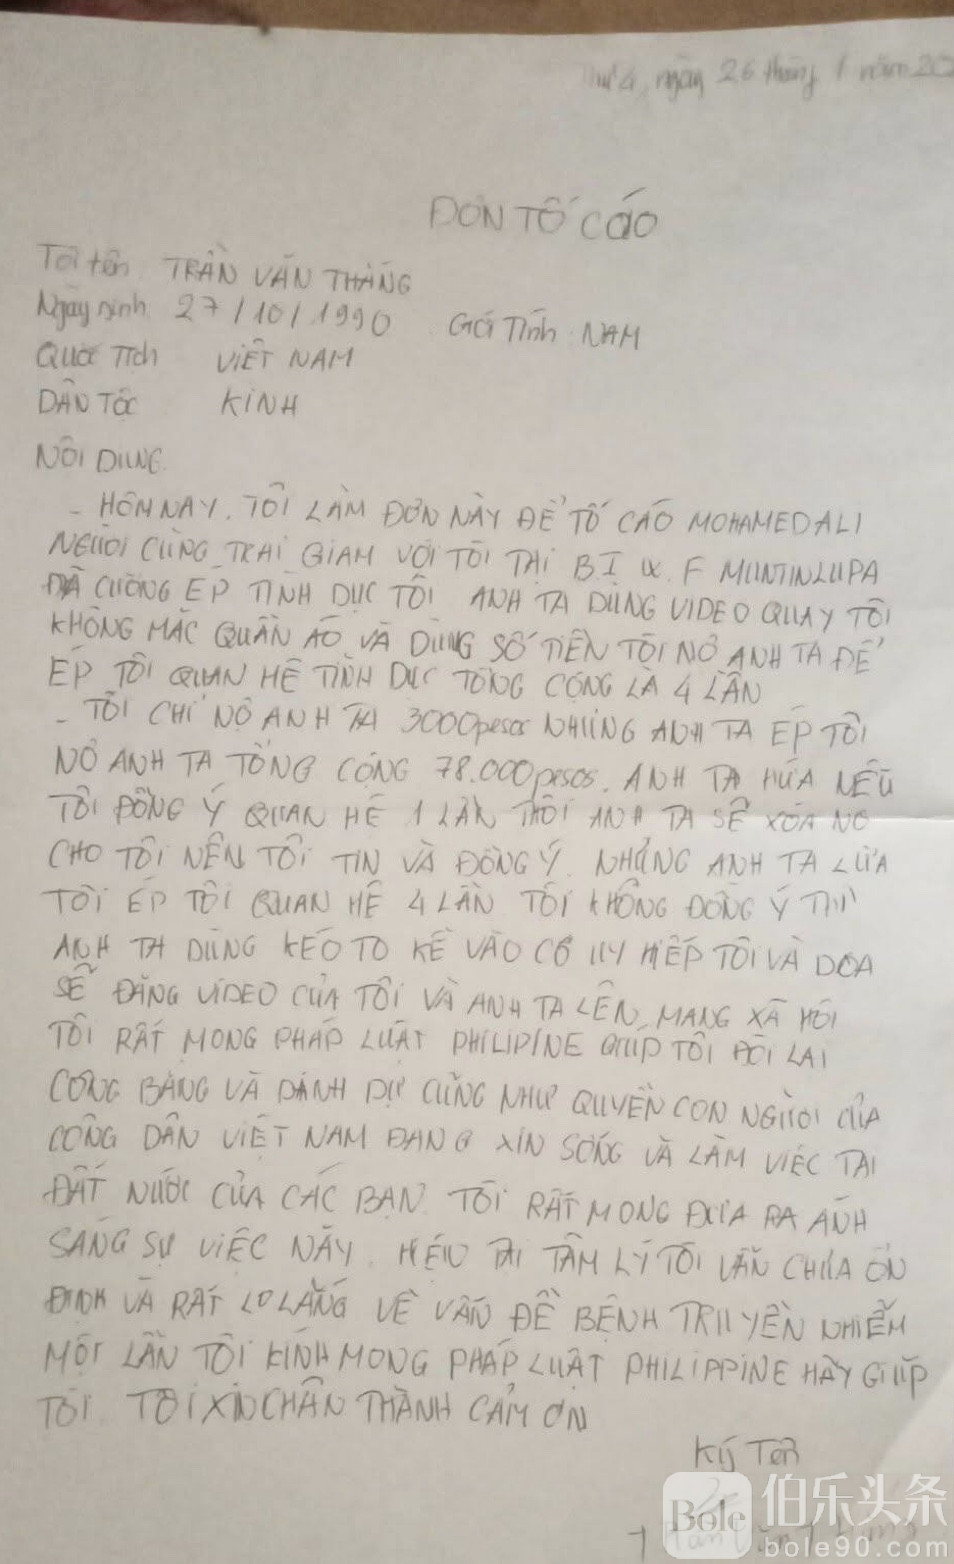 Thứ 4, ngày 26 tháng 1 năm 20
ĐƠN TỐ CÁO
Tôi tên TRẦN VĂN THẮNG
Ngày sinh 27/10/1990 Giới Tính: NAM
Quốc Tịch VIỆT NAM
DÂN TỘC KINH
NỘI DUNG.
- HÔM NAY. TÔI LÀM ĐƠN NÀY ĐỂ TỐ CÁO MOHAMED ALI
NGƯỜI CÙNG TRẠI GIAM VỚI TÔI TẠI B.I F MUNTINLUPA
ĐÃ CƯỠNG ÉP TÌNH DỤC TÔI ANH TA DÙNG VIDEO QUAY TÔI
KHÔNG MẶC QUẦN ÁO VÀ DÙNG SỐ TIỀN TÔI NỢ ANH TA ĐỂ
ÉP TÔI QUAN HỆ TÌNH DỤC TỔNG CỘNG LÀ 4 LẦN
- TÔI CHỈ NỢ ANH TA 3000pesos NHƯNG ANH TA ÉP TÔI
NỢ ANH TA TỔNG CỘNG 78.000pesos. ANH TA HỨA NẾU
TÔI ĐỒNG Ý QUAN HỆ 1 LẦN THÔI ANH TA SẼ XÓA NỢ
CHO TÔI NÊN TÔI TIN VÀ ĐỒNG Ý. NHƯNG ANH TA LỪA
TÔI ÉP TÔI QUAN HỆ 4 LẦN TÔI KHÔNG ĐỒNG Ý THÌ
ANH TA DÙNG KÉO TO KỀ VÀO CỔ UY HIẾP TÔI VÀ DỌA
SẼ ĐĂNG VIDEO CỦA TÔI VÀ ANH TA LÊN MẠNG XÃ HỘI
TÔI RẤT MONG PHÁP LUẬT PHILIPINE GIÚP TÔI ĐÒI LẠI
CÔNG BẰNG VÀ DANH DỰ CŨNG NHƯ QUYỀN CON NGƯỜI CỦA
CÔNG DÂN VIỆT NAM ĐANG XIN SỐNG VÀ LÀM VIỆC TẠI
ĐẤT NƯỚC CỦA CÁC BẠN. TÔI RẤT MONG ĐƯA RA ÁNH
SÁNG SỰ VIỆC NÀY. HIỆN TẠI TÂM LÝ TÔI VẪN CHƯA ỔN
ĐỊNH VÀ RẤT LO LẮNG VỀ VẤN ĐỀ BỆNH TRUYỀN NHIỄM
MỘT LẦN TÔI KÍNH MONG PHÁP LUẬT PHILIPPINE HÃY GIÚP
TÔI. TÔI XIN CHÂN THÀNH CẢM ƠN
Ký Tên
Bole 伯乐头条
bole90.com